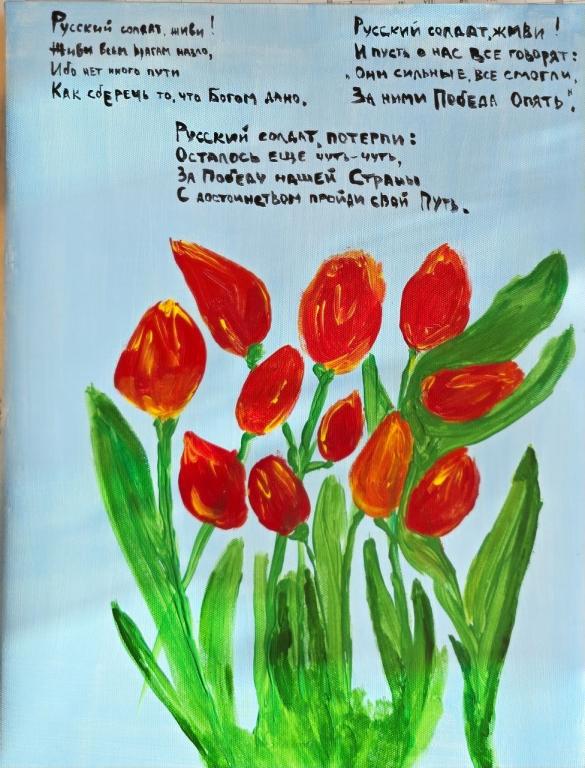 Русский солдат, живи!
Живи всем врагам назло,
Ибо нет иного пути
Как сберечь то, что Богом дано.
Русский солдат, живи!
И пусть о нас все говорят:
„Они сильные, все смогли,
За ними Победа Опять".
Русский солдат, потерпи:
Осталось еще чуть-чуть,
За Победу нашей Страны
С достоинством пройди свой Путь.